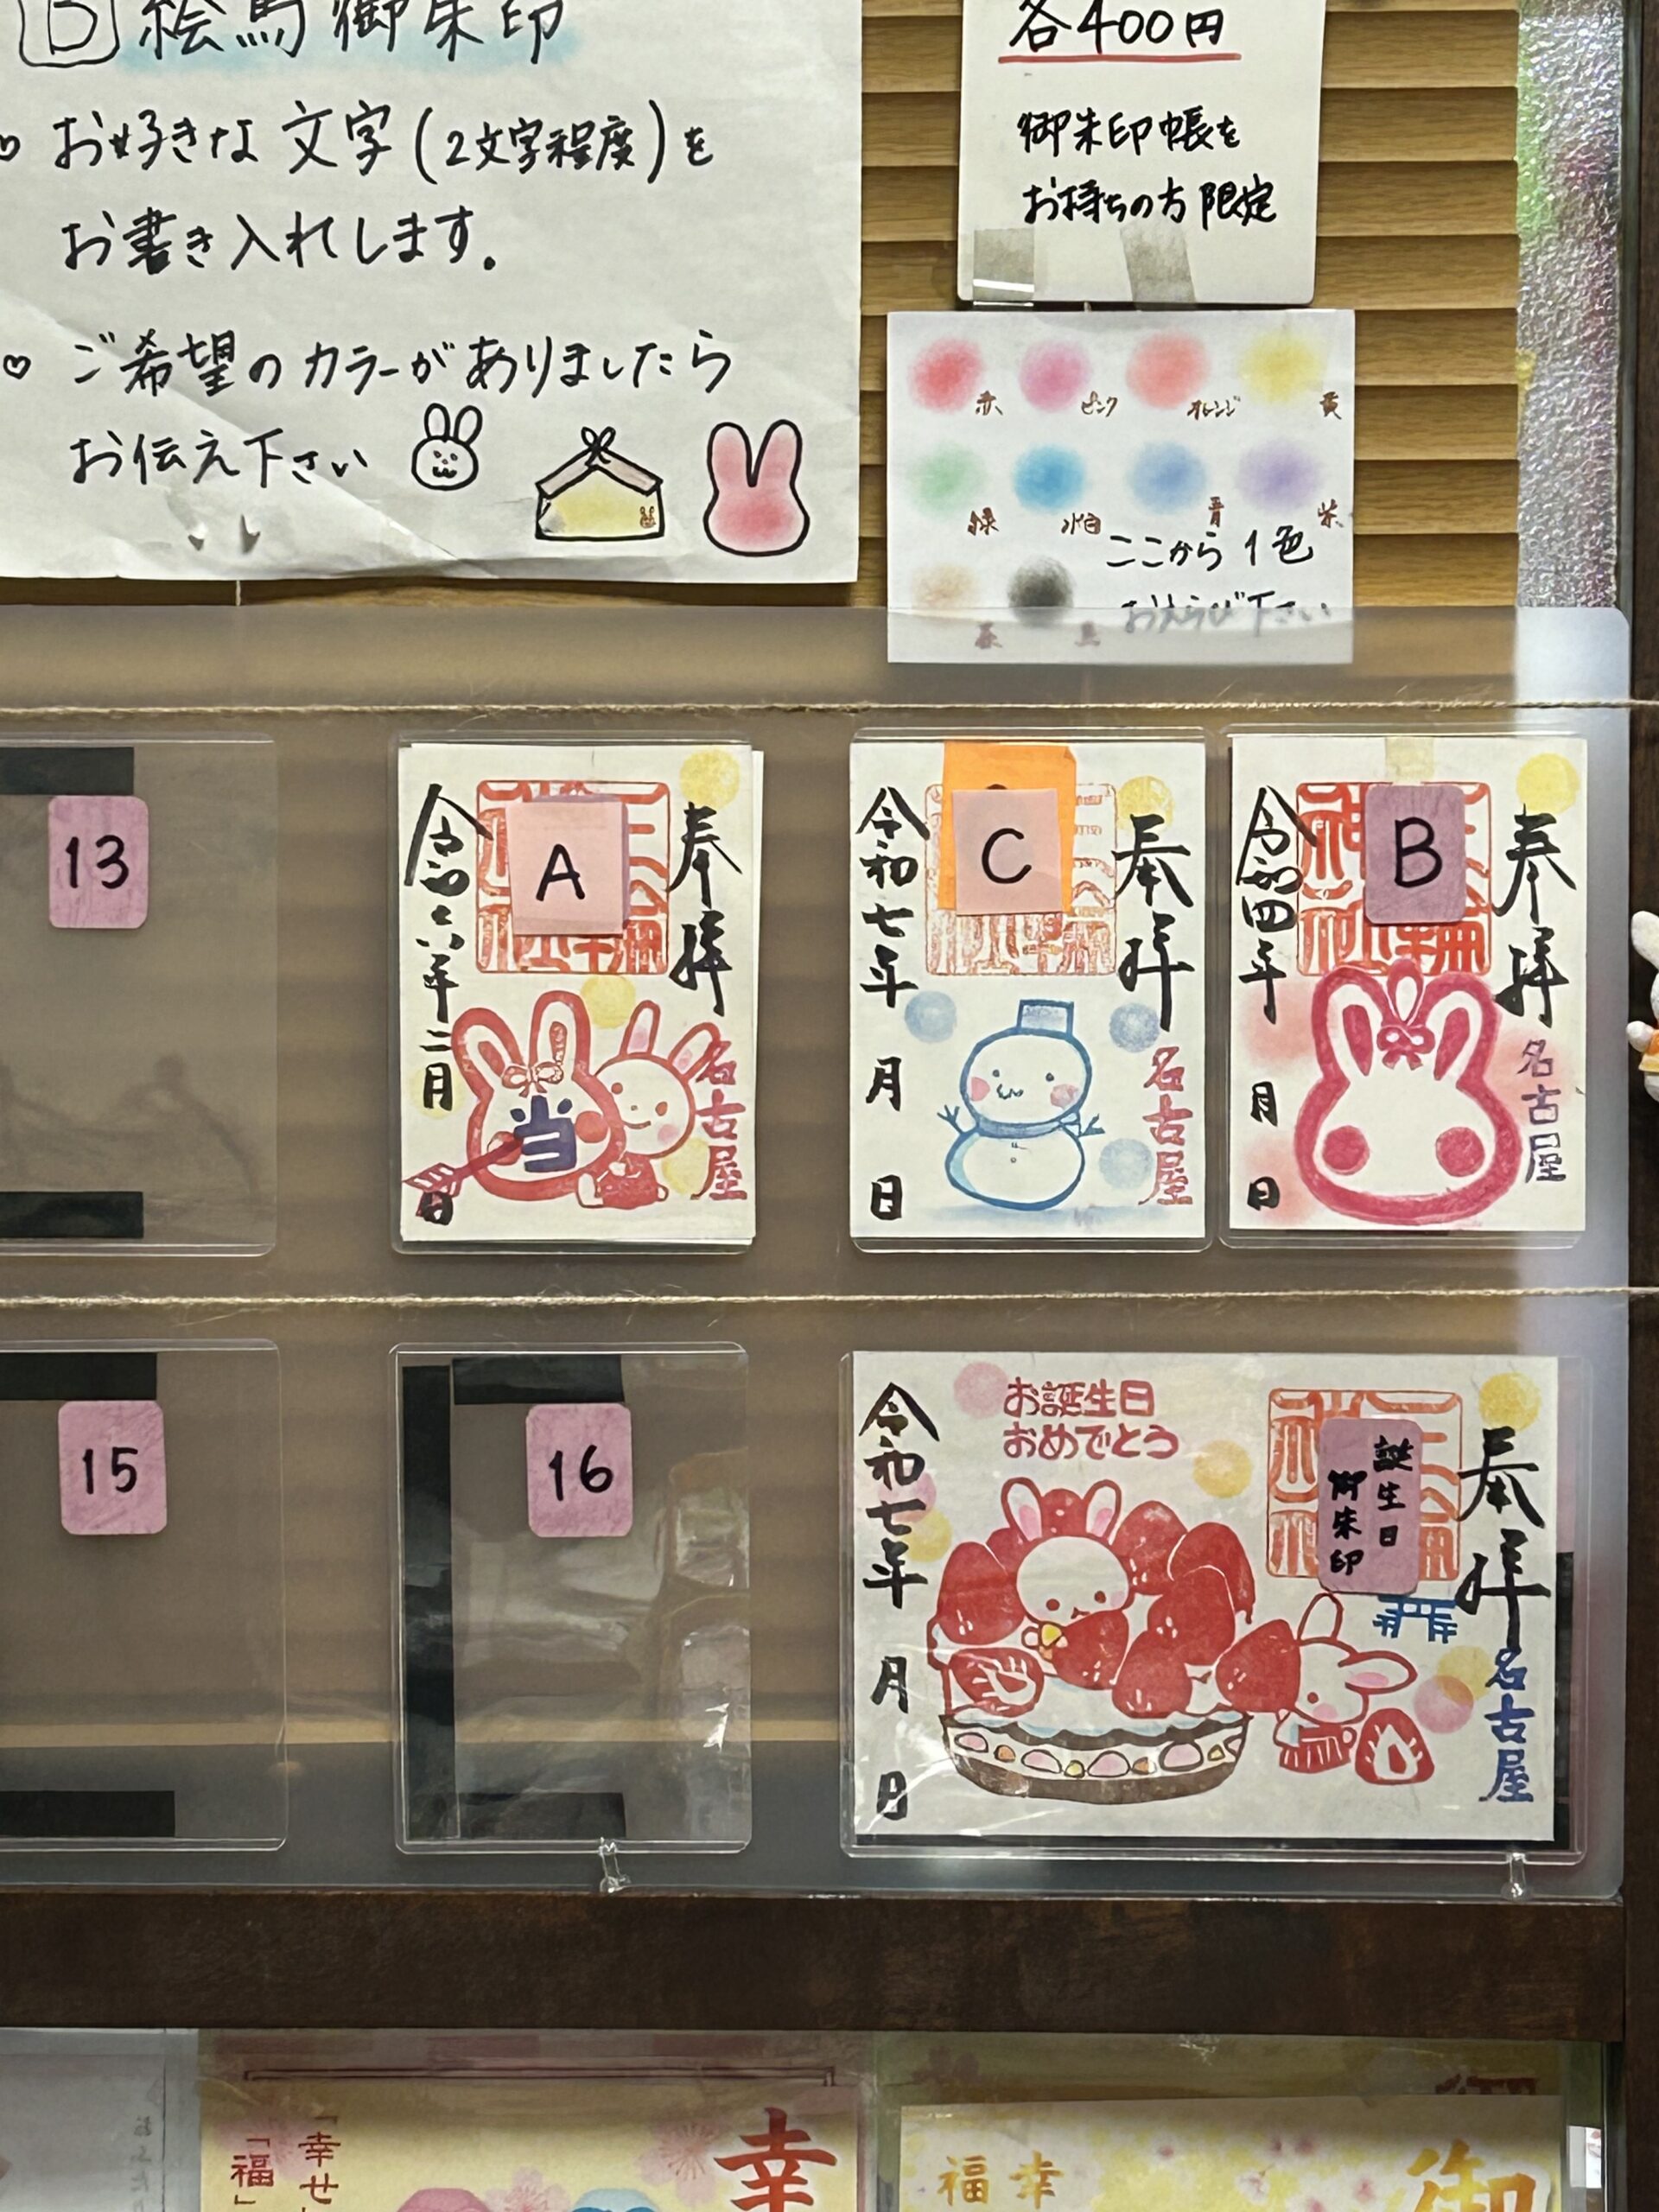 B 絵馬御朱印
♡ お好きな文字(2文字程度)を
お書き入れします。
♡ ご希望のカラーがありましたら
お伝え下さい
各400円
御朱印帳を
お持ちの方限定
赤 ピンク オレンジ 黄
緑 水色 青 紫
茶 黒
ここから1色
おえらび下さい
13
A
奉拝
名古屋
令和六年二月
日
当
C
奉拝
名古屋
令和七年
月
日
B
奉拝
名古屋
令和四年
月
日
15
16
お誕生日
おめでとう
誕生日
御朱印
奉拝
名古屋
令和七年
月
日
幸
「幸せ
「福」
御
幸
福